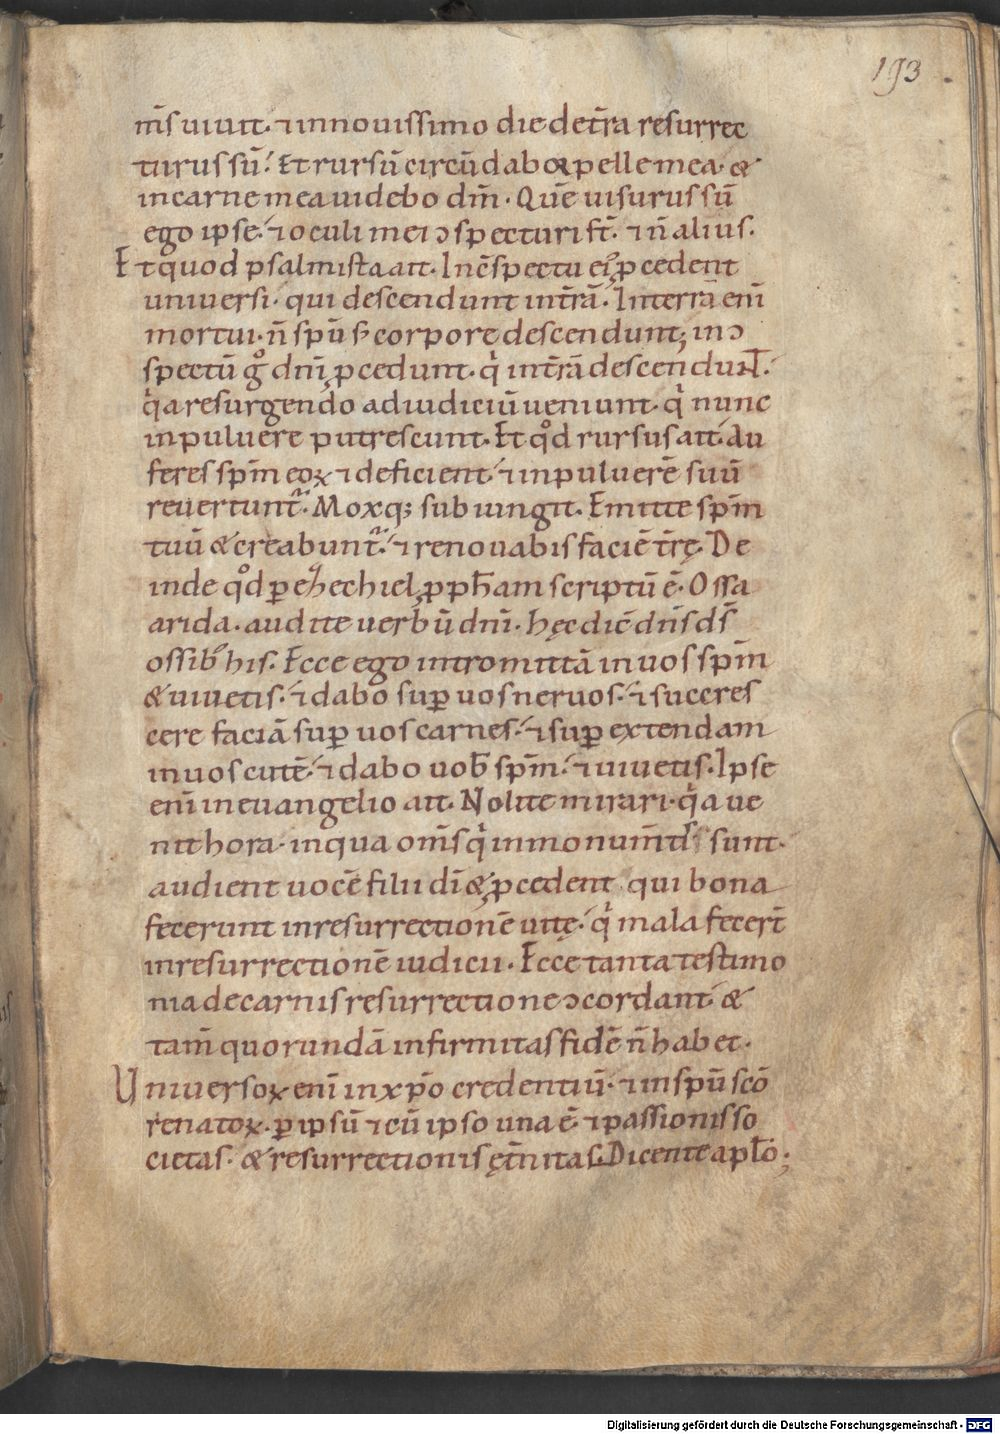 193
m̅s uiuit· ⁊ in nouissimo die de t̅ra resurrec
turus su̅. Et rursu̅ circu̅dabor pelle mea· &
in carne mea uidebo dm̅· Que̅ uisurus su̅
ego ipse· ⁊ oculi mei ↄspecturi st̅· ⁊ n̅ alius·
Et quod psalmista ait· In c̅spectu ei᾽ ꝓcedent
uniuersi· qui descendunt in t̅ra̅· In terra̅ eni̅
mortui· n̅ spu̅ s; corpore descendunt; in ↄ
spectu̅ gͦ dni̅ ꝓcedunt· qͥ in t̅ra̅ descendunt·
qͥa resurgendo ad iudiciu̅ ueniunt· qͥ nunc
in puluere putrescunt· Et qͦd rursus ait· Au
feres spm̅ eoꝝ ⁊ deficient· ⁊ in puluere̅ suu̅
reuertunt᷑· Moxq; subiungit· Emitte spm̅
tuu̅ & creabunt᷑· ⁊ renouabis facie̅ t̅rę· De
inde qͦd ꝑ ezechiel ꝓph̅am scriptu̅ e̅· Ossa
arida· audite uerbu̅ dni̅· hęc dic̅ dn̅s ds̅
ossib᾽ his· Ecce ego intromitta̅ in uos spm̅
& uiuetis· ⁊ dabo suꝑ uos neruos· ⁊ succres
cere facia̅ suꝑ uos carnes· ⁊ suꝑextendam
in uos cute̅· ⁊ dabo uob̅ spm̅· ⁊ uiuetis· Ipse
eni̅ in euangelio ait· Nolite mirari· qͥa ue
nit hora· in qua om̅s qͥ in monum̅tis sunt·
audient uoce̅ filii di̅ & ꝓcedent qui bona
fecerunt in resurrectione̅ uitę· qͥ mala fecer̅t
in resurrectione̅ iudicii· Ecce tanta testimo
nia de carnis resurrectione ↄcordant· &
tam̅ quorunda̅ infirmitas fide̅ n̅ habet·
Uniuersoꝝ eni̅ in xp̅o credentiu̅· ⁊ in spu̅ sc̅o
renatoꝝ· ꝑ ipsu̅ ⁊ cu̅ ipso una e̅· ⁊ passionis so
cietas· & resurrectionis ęt̅nitas· Dicente apl̅o;
Digitalisierung gefördert durch die Deutsche Forschungsgemeinschaft - DFG